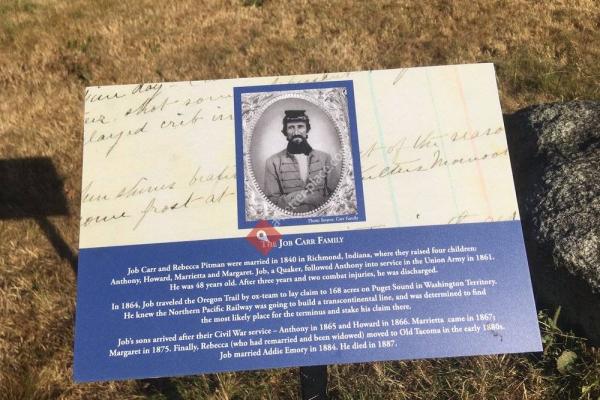 am day-
shot som
played crib in
t of the seaso
ome frost at
Photo Source: Carr Family
The Job Carr Family
Job Carr and Rebecca Pitman were married in 1840 in Richmond, Indiana, where they raised four children:
Anthony, Howard, Marrietta and Margaret. Job, a Quaker, followed Anthony into service in the Union Army in 1861.
He was 48 years old. After three years and two combat injuries, he was discharged.
In 1864, Job traveled the Oregon Trail by ox-team to lay claim to 168 acres on Puget Sound in Washington Territory.
He knew the Northern Pacific Railway was going to build a transcontinental line, and was determined to find
the most likely place for the terminus and stake his claim there.
Job's sons arrived after their Civil War service – Anthony in 1865 and Howard in 1866. Marrietta came in 1867;
Margaret in 1875. Finally, Rebecca (who had remarried and been widowed) moved to Old Tacoma in the early 1880s.
Job married Addie Emory in 1884. He died in 1887.